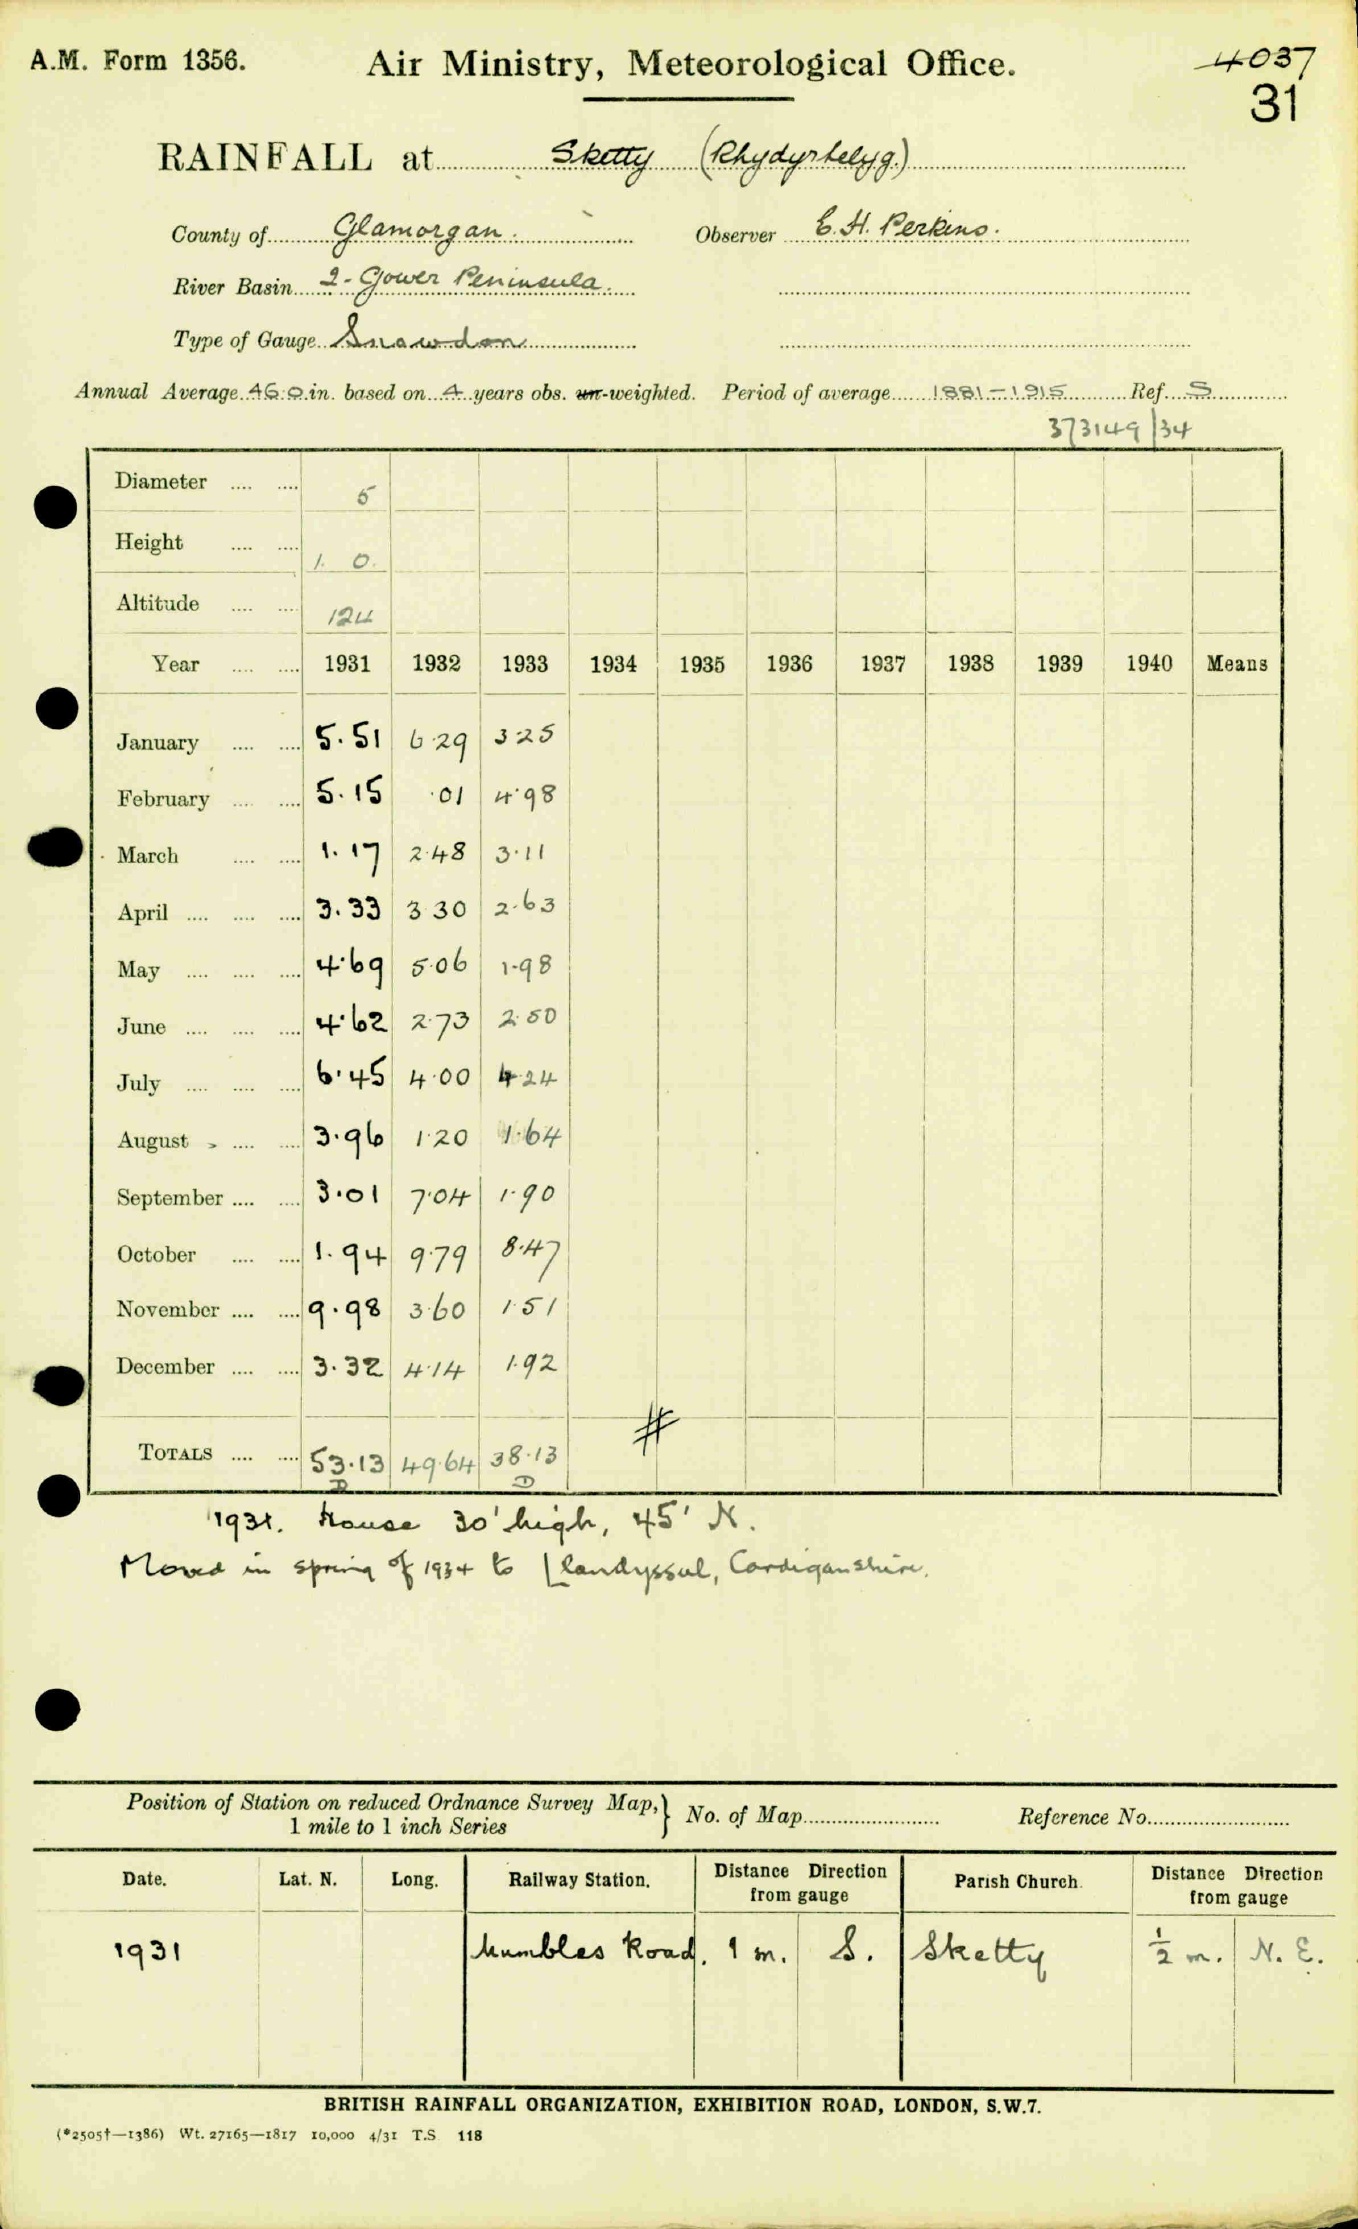 A.M. Form 1356. Air Ministry, Meteorological Office. 4037
31
RAINFALL at Sketty (Rhydyrhelyg.)
County of Glamorgan. Observer E. H. Perkins.
River Basin 2 - Gower Peninsula.
Type of Gauge Snowdon
Annual Average 46.0 in. based on 4 years obs. un-weighted. Period of average 1881-1915 Ref. S
373149/34
Diameter .... .... 5
Height .... .... 1. 0.
Altitude .... .... 124
Year .... .... 1931 1932 1933 1934 1935 1936 1937 1938 1939 1940 Means
January .... .... 5.51 6.29 3.25
February .... .... 5.15 .01 4.98
March .... .... 1.17 2.48 3.11
April .... .... .... 3.33 3.30 2.63
May .... .... .... 4.69 5.06 1.98
June .... .... .... 4.62 2.73 2.50
July .... .... .... 6.45 4.00 4.24
August .... .... 3.96 1.20 1.64
September .... .... 3.01 7.04 1.90
October .... .... 1.94 9.79 8.47
November .... .... 9.98 3.60 1.51
December .... .... 3.32 4.14 1.92
#
TOTALS .... .... 53.13 49.64 38.13
D D
1931. House 30' high, 45' N.
Moved in spring of 1934 to Llandyssul, Cardiganshire.
Position of Station on reduced Ordnance Survey Map, } No. of Map Reference No.
1 mile to 1 inch Series
Date. Lat. N. Long. Railway Station. Distance Direction from gauge Parish Church. Distance Direction from gauge
1931 Mumbles Road. 1 m. S. Sketty ½ m. N. E.
BRITISH RAINFALL ORGANIZATION, EXHIBITION ROAD, LONDON, S.W.7.
(*2505†—1386) Wt. 27165—1817 10,000 4/31 T.S 118